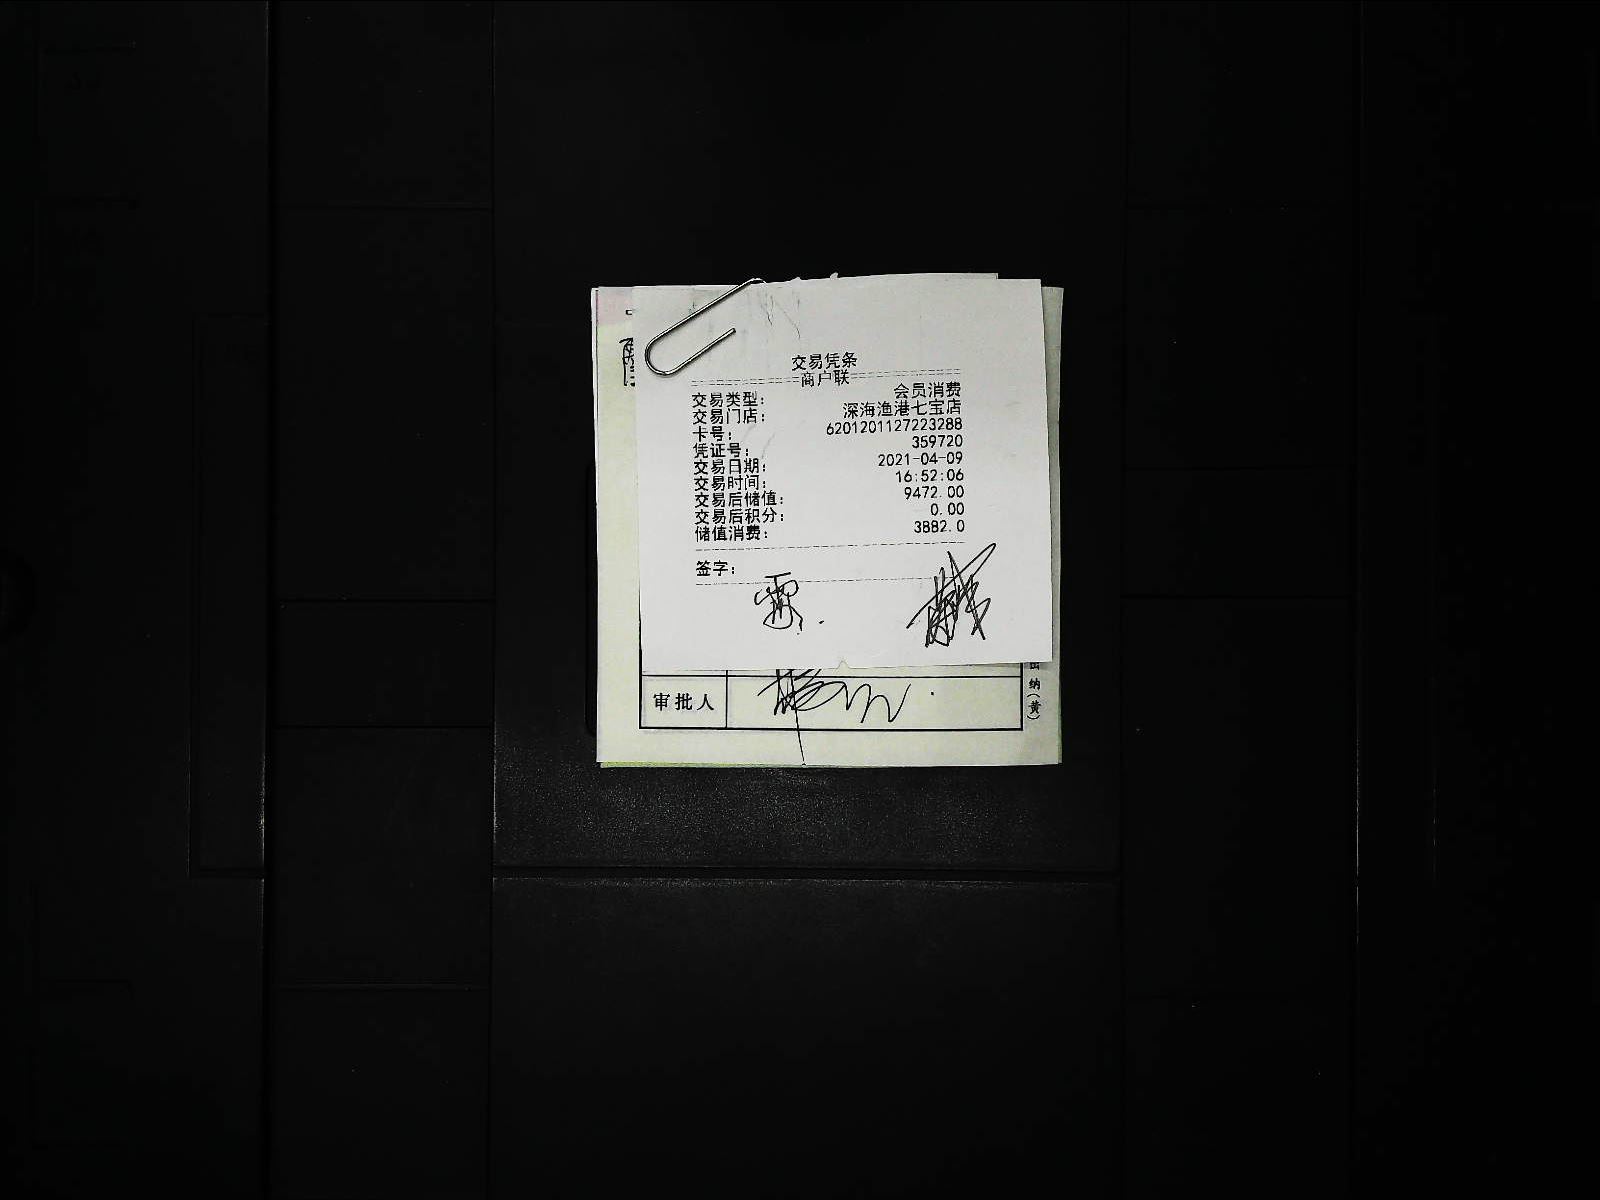 交易凭条
商户联
交易类型： 会员消费
交易门店： 深海渔港七宝店
卡号： 6201201127223288
凭证号： 359720
交易日期： 2021-04-09
交易时间： 16:52:06
交易后储值： 9472.00
交易后积分： 0.00
储值消费： 3882.0
签字：
审批人
纳（黄）